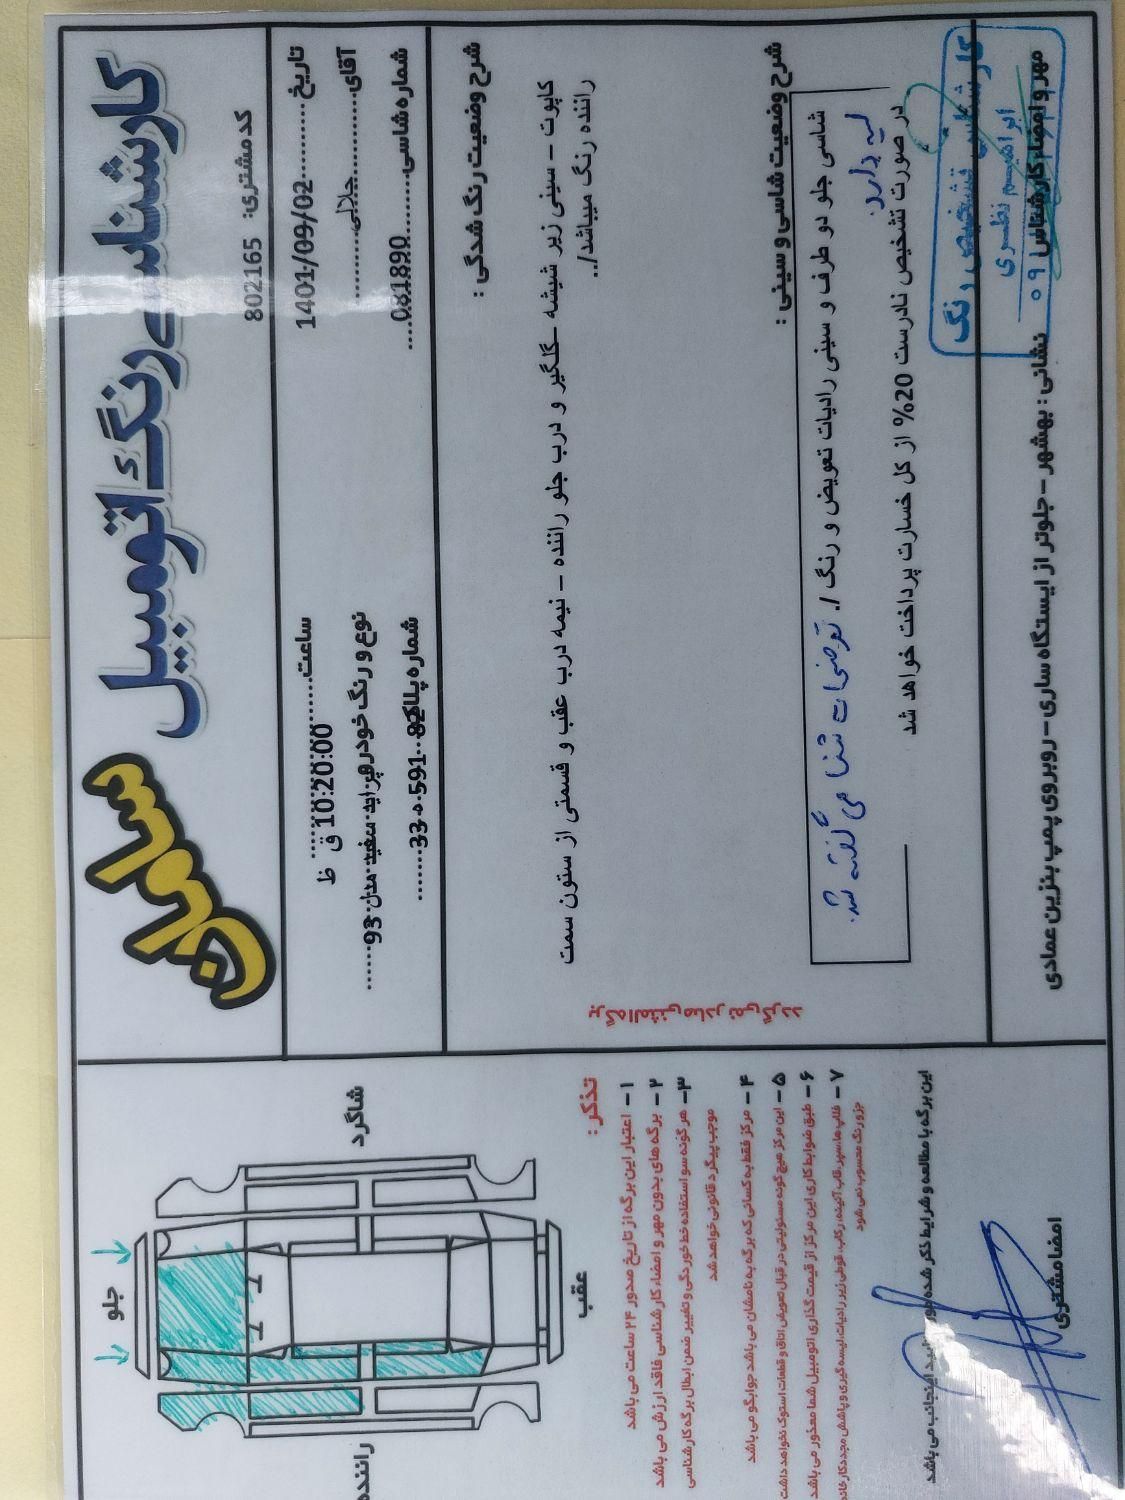 سامان
کارشناسی رنگ اتومبیل
کد مشتری: 802165
تاریخ 1401/09/02
ساعت 10:20:00 ق ظ
آقای جلالی
نوع و رنگ خودرو پراید سفید مدل 93
شماره شاسی 081890
شماره پلاک
شرح وضعیت رنگ شدگی :
کاپوت – سینی زیر شیشه – گلگیر و درب جلو راننده – نیمه درب عقب و قسمتی از ستون سمت
راننده رنگ میباشد/..
شرح وضعیت شاسی و سینی :
شاسی جلو دو طرف و سینی رادیات تعویض و رنگ /. توضیحات شفا می گفته شد.
لیه دارد.
در صورت تشخیص نادرست 20% از کل خسارت پرداخت خواهد شد
برگه المثنی صادر نمی گردد
مهر و امضاء کارشناس
کارشناسی تشخیص رنگ
ابراهیم نظری
نشانی : بهشهر – جلوتر از ایستگاه ساری – روبروی پمپ بنزین عمادی
جلو
شاگرد
راننده
عقب
تذکر :
۱ – اعتبار این برگه از تاریخ صدور ۲۴ ساعت می باشد
۲ – برگه های بدون مهر و امضاء کارشناسی فاقد ارزش می باشد
۳– هر گونه سو استفاده خط خوردگی و تغییر ضمن ابطال برگه کارشناسی
موجب پیگرد قانونی خواهد شد
۴ – مرکز فقط به کسانی که برگه به نامشان می باشد جوابگو می باشد
۵ – این مرکز هیچ گونه مسئولیتی در قبال تعویض اتاق و قطعات استوک نخواهد داشت
۶ – طبق ضوابط کاری این مرکز از قیمت گذاری اتومبیل شما معذور می باشد
۷ – قالپ ها، سپر، قاب آئینه، رکاب، قوطی زیر رادیات، لیسه گیری و پاشش مجدد کارخانه
جزو رنگ محسوب نمی شود
این برگه با مطالعه و شرایط ذکر شده مورد تایید اینجانب می باشد
امضا مشتری